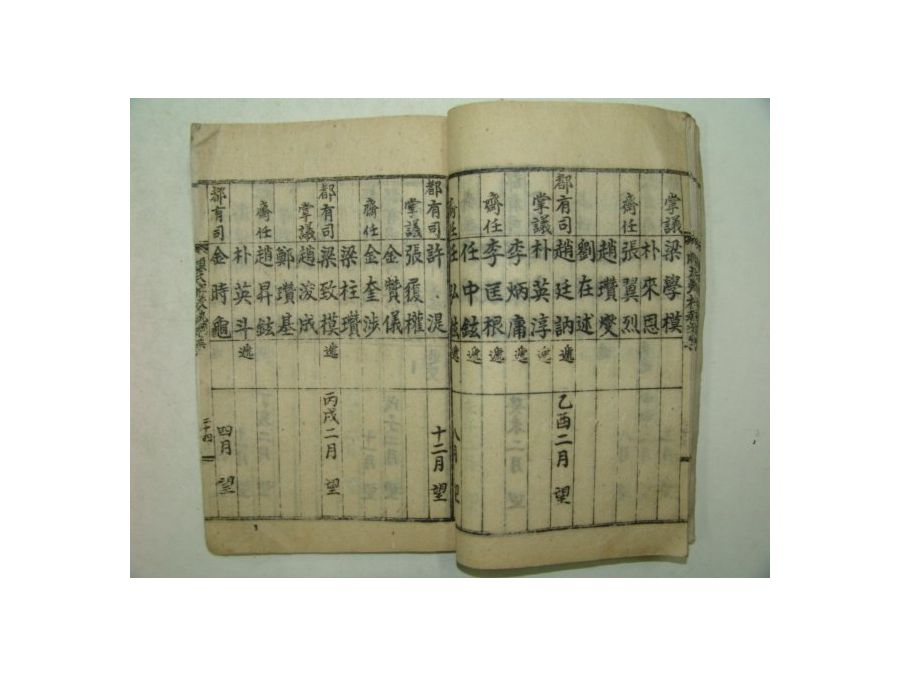 掌議 梁學模
朴來恩
齋任 張翼烈
趙瓚燮
劉在述
都有司 趙廷訥 遞 乙酉二月 望
掌議 朴英淳 遞
李炳庸 遞
齋任 李匡根 遞
任中鉉 遞
任弘 遞 八月 望
都有司 許混 十二月 望
掌議 張履權
金贊儀
齋任 金奎涉
梁柱瓚
都有司 梁致模 丙戌二月 望
掌議 趙浚成
鄭瓚基
齋任 趙昇鉉
朴英斗 遞
都有司 金時龜 四月 望
三十四